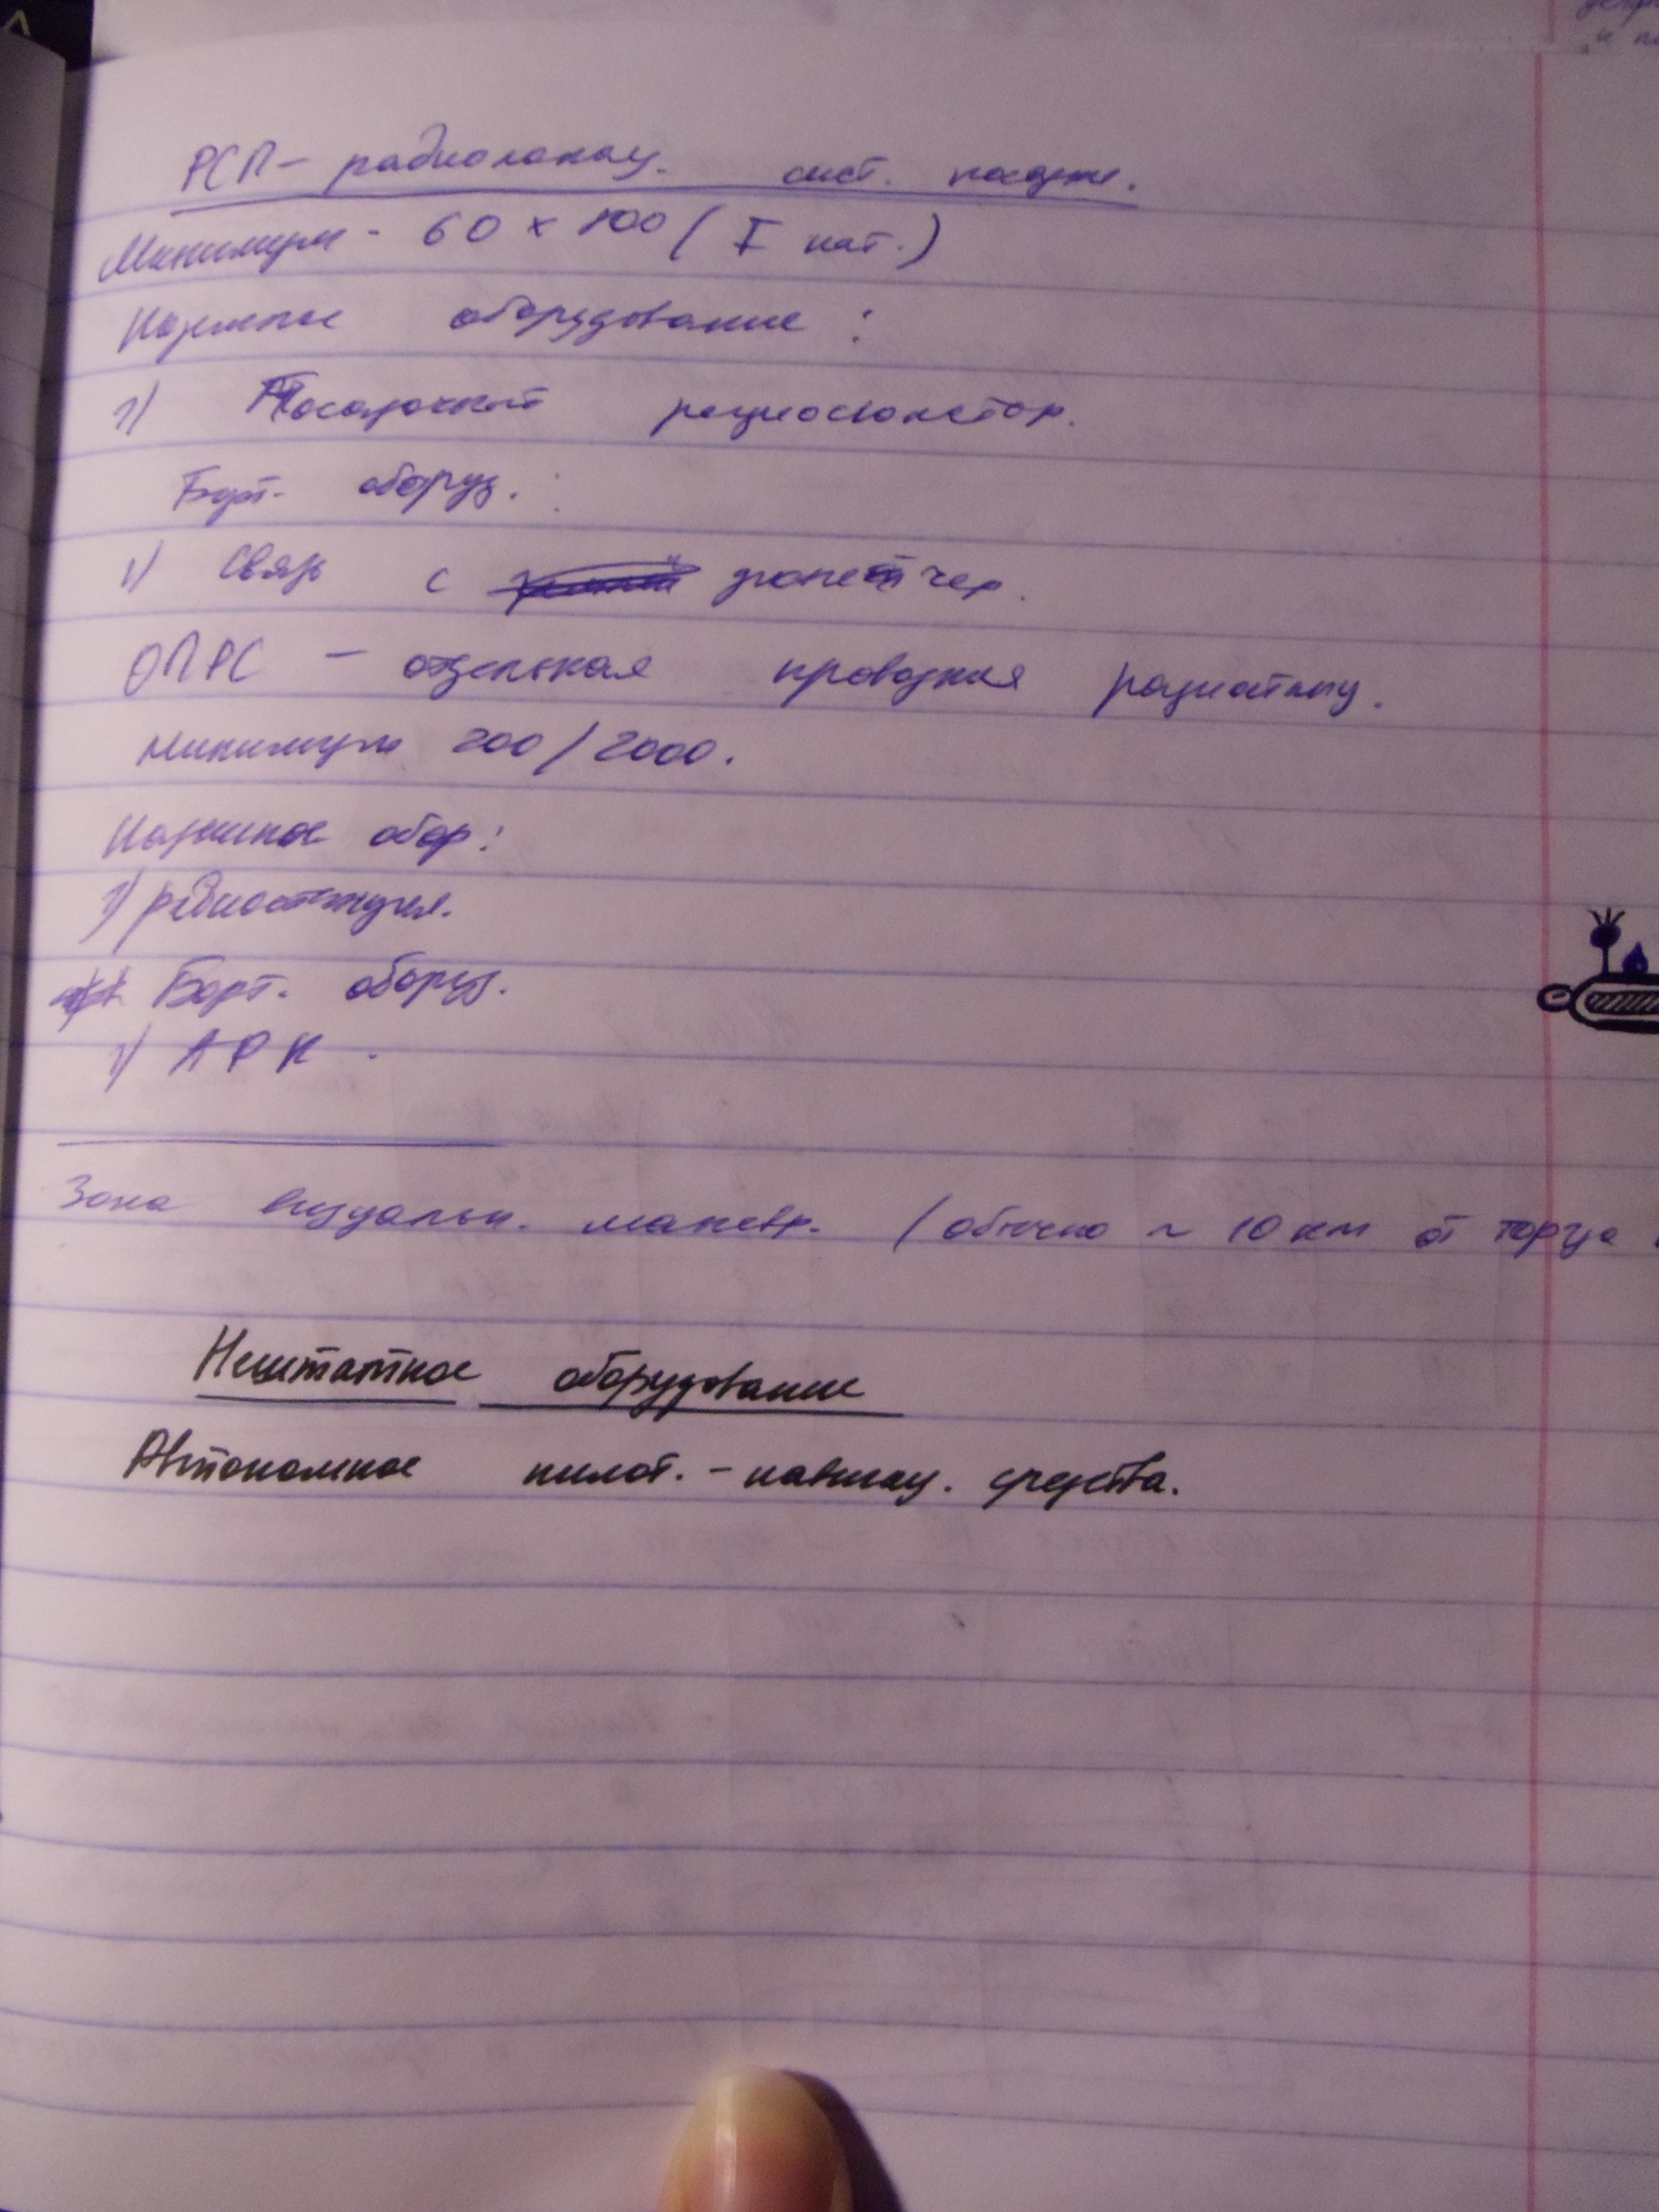 РСП – радиолокац. сист. посадки.
Минимум - 60 × 800 ( I кат. )
Наземное оборудование :
1) Посадочный радиолокатор.
Борт. оборуд. :
1) Связь с диспетчер.
ОПРС – отдельная приводная радиостанц.
Минимум 200 / 2000.
Наземное обор :
1) радиостанция.
Борт. оборуд.
1) АРК .
Зона визуальн. маневр. ( обычно ~ 10 км от торца
Нештатное оборудование
Автономное пилот. - навигац. средства.